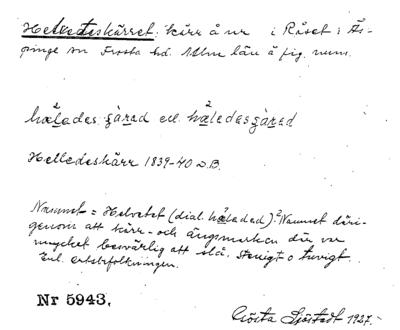 Helvedeskärret: kärr å nr i Röset i Äs-
pinge sn Frosta hd. Mlm län å fig. num.
hälades särad ell. häledessärad
Helledeskärr 1839-40 D.B.
Namnet = Helvetet (dial. häladed). Namnet däri-
genom att kärr- och ängsmarken där var
mycket besvärlig att slå. Stenigt o tuvigt.
Enl. ortsbefolkningen.
Nr 5943.
Gösta Sjöstedt 1927.